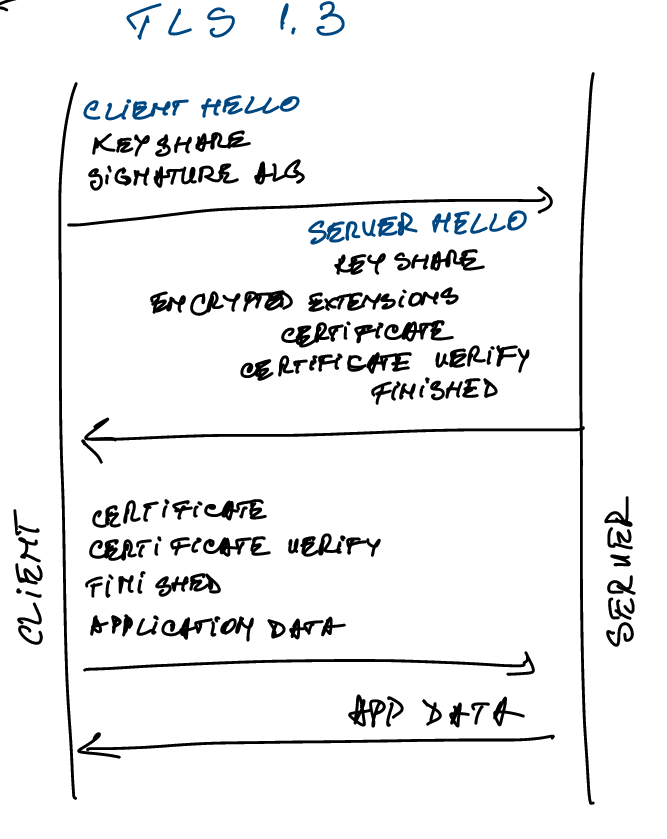 TLS 1.3
CLIENT HELLO
KEY SHARE
SIGNATURE ALG
SERVER HELLO
KEY SHARE
ENCRYPTED EXTENSIONS
CERTIFICATE
CERTIFICATE VERIFY
FINISHED
CERTIFICATE
CERTIFICATE VERIFY
FINISHED
APPLICATION DATA
APP DATA
CLIENT
SERVER